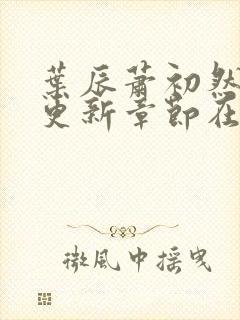 葉辰蕭初然
更新章節在
微風中搖曳